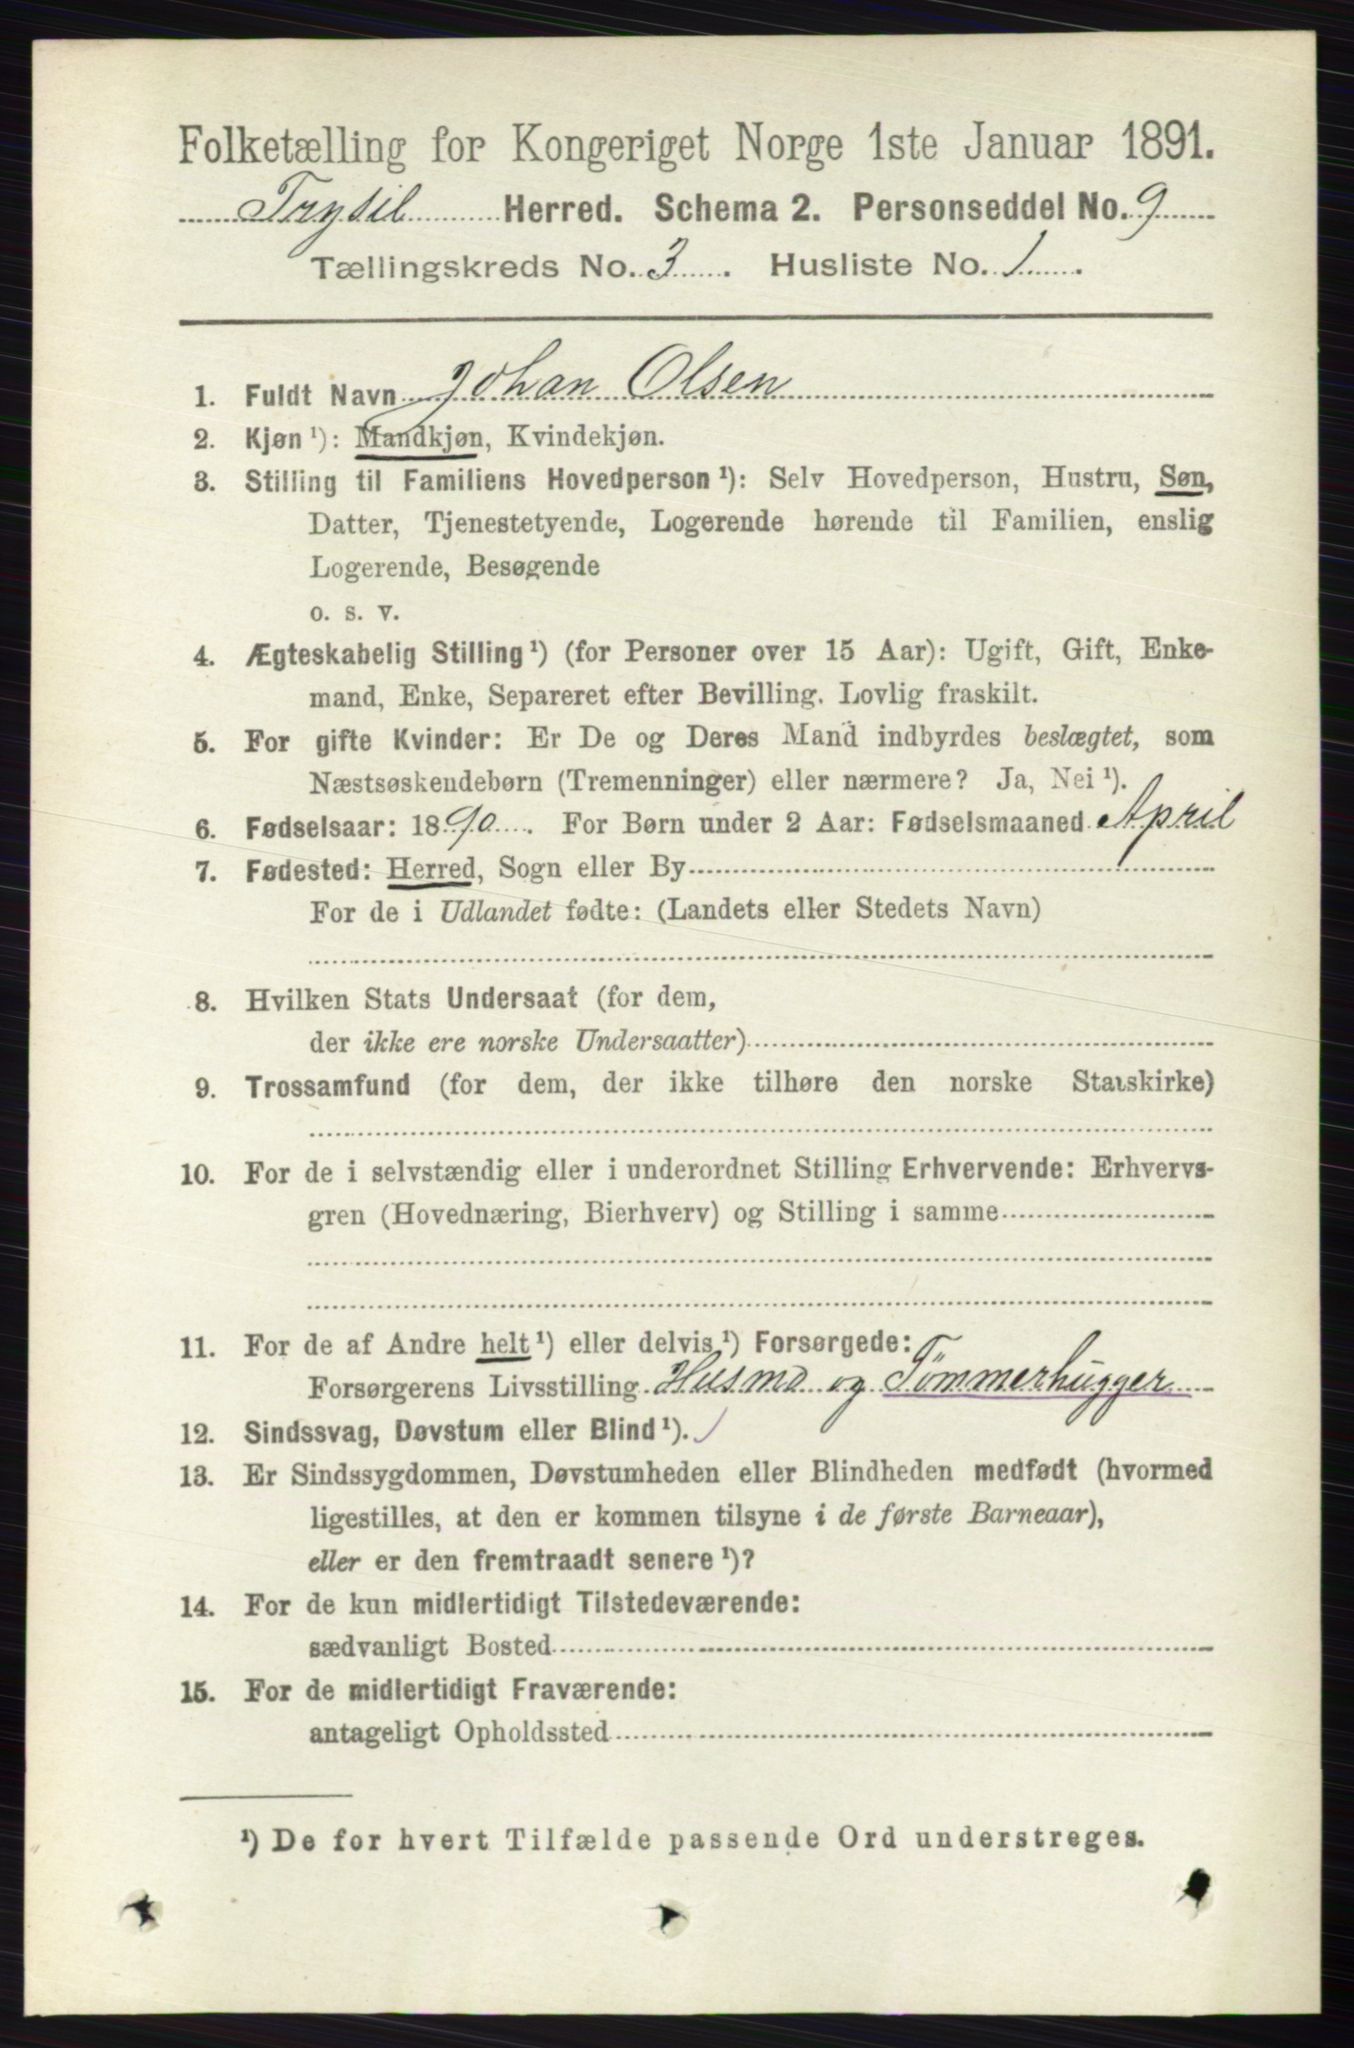 Folketælling for Kongeriget Norge 1ste Januar 1891.
Trysil Herred. Schema 2. Personseddel No. 9
Tællingskreds No. 3. Husliste No. 1.
1. Fuldt Navn Johan Olsen
2. Kjøn ¹): Mandkjøn, Kvindekjøn.
3. Stilling til Familiens Hovedperson ¹): Selv Hovedperson, Hustru, Søn,
Datter, Tjenestetyende, Logerende hørende til Familien, enslig
Logerende, Besøgende
o. s. v.
4. Ægteskabelig Stilling ¹) (for Personer over 15 Aar): Ugift, Gift, Enke-
mand, Enke, Separeret efter Bevilling. Lovlig fraskilt.
5. For gifte Kvinder: Er De og Deres Mand indbyrdes beslægtet, som
Næstsøskendebørn (Tremenninger) eller nærmere? Ja, Nei ¹).
6. Fødselsaar: 1890. For Børn under 2 Aar: Fødselsmaaned April
7. Fødested: Herred, Sogn eller By
For de i Udlandet fødte: (Landets eller Stedets Navn)
8. Hvilken Stats Undersaat (for dem,
der ikke ere norske Undersaatter)
9. Trossamfund (for dem, der ikke tilhøre den norske Statskirke)
10. For de i selvstændig eller i underordnet Stilling Erhvervende: Erhvervs-
gren (Hovednæring, Bierhverv) og Stilling i samme
11. For de af Andre helt ¹) eller delvis ¹) Forsørgede:
Forsørgerens Livsstilling Husmd og Tømmerhugger
12. Sindssvag, Døvstum eller Blind ¹).
13. Er Sindssygdommen, Døvstumheden eller Blindheden medfødt (hvormed
ligestilles, at den er kommen tilsyne i de første Barneaar),
eller er den fremtraadt senere ¹)?
14. For de kun midlertidigt Tilstedeværende:
sædvanligt Bosted
15. For de midlertidigt Fraværende:
antageligt Opholdssted
¹) De for hvert Tilfælde passende Ord understreges.